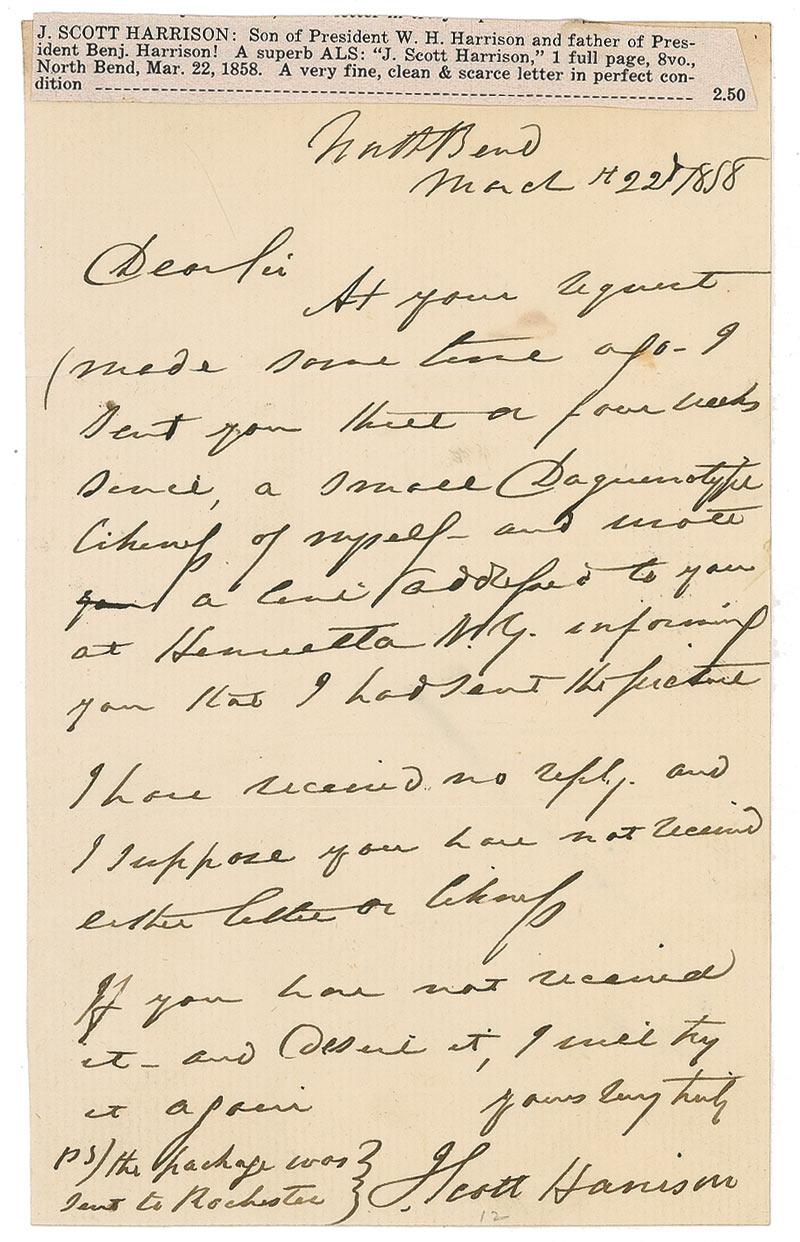 J. SCOTT HARRISON: Son of President W. H. Harrison and father of Pres-
ident Benj. Harrison! A superb ALS: “J. Scott Harrison,” 1 full page, 8vo.,
North Bend, Mar. 22, 1858. A very fine, clean & scarce letter in perfect con-
dition ---------------------------------------------------------------- 2.50
North Bend
March 22d 1858
Dear Sir
At your request
(made some time ago - I
sent you three or four weeks
since, a small Daguerrotype
likeness of myself - and wrote
you a line addressed to you
at Henrietta N.Y. informing
you that I had sent the picture
I have received no reply. and
I suppose you have not received
either letter or likeness
If you have not received
it - and desire it, I will try
it again yours very truly
PS/ the package was
sent to Rochester } J Scott Harrison
12